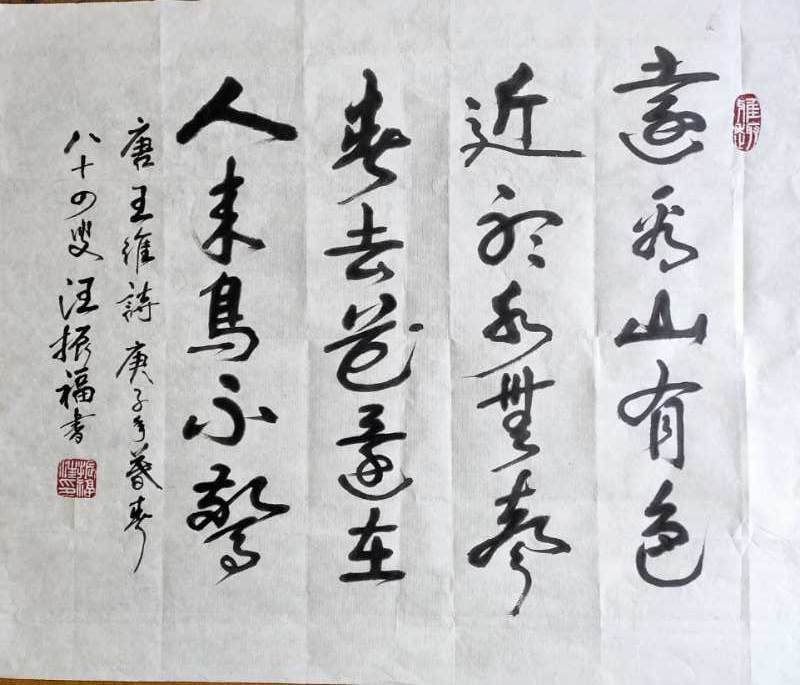 遠看山有色
近聽水無聲
春去花還在
人來鳥不驚
唐王維詩 庚子年暮春
八十四叟 汪振福書
雅趣
振福
汪印